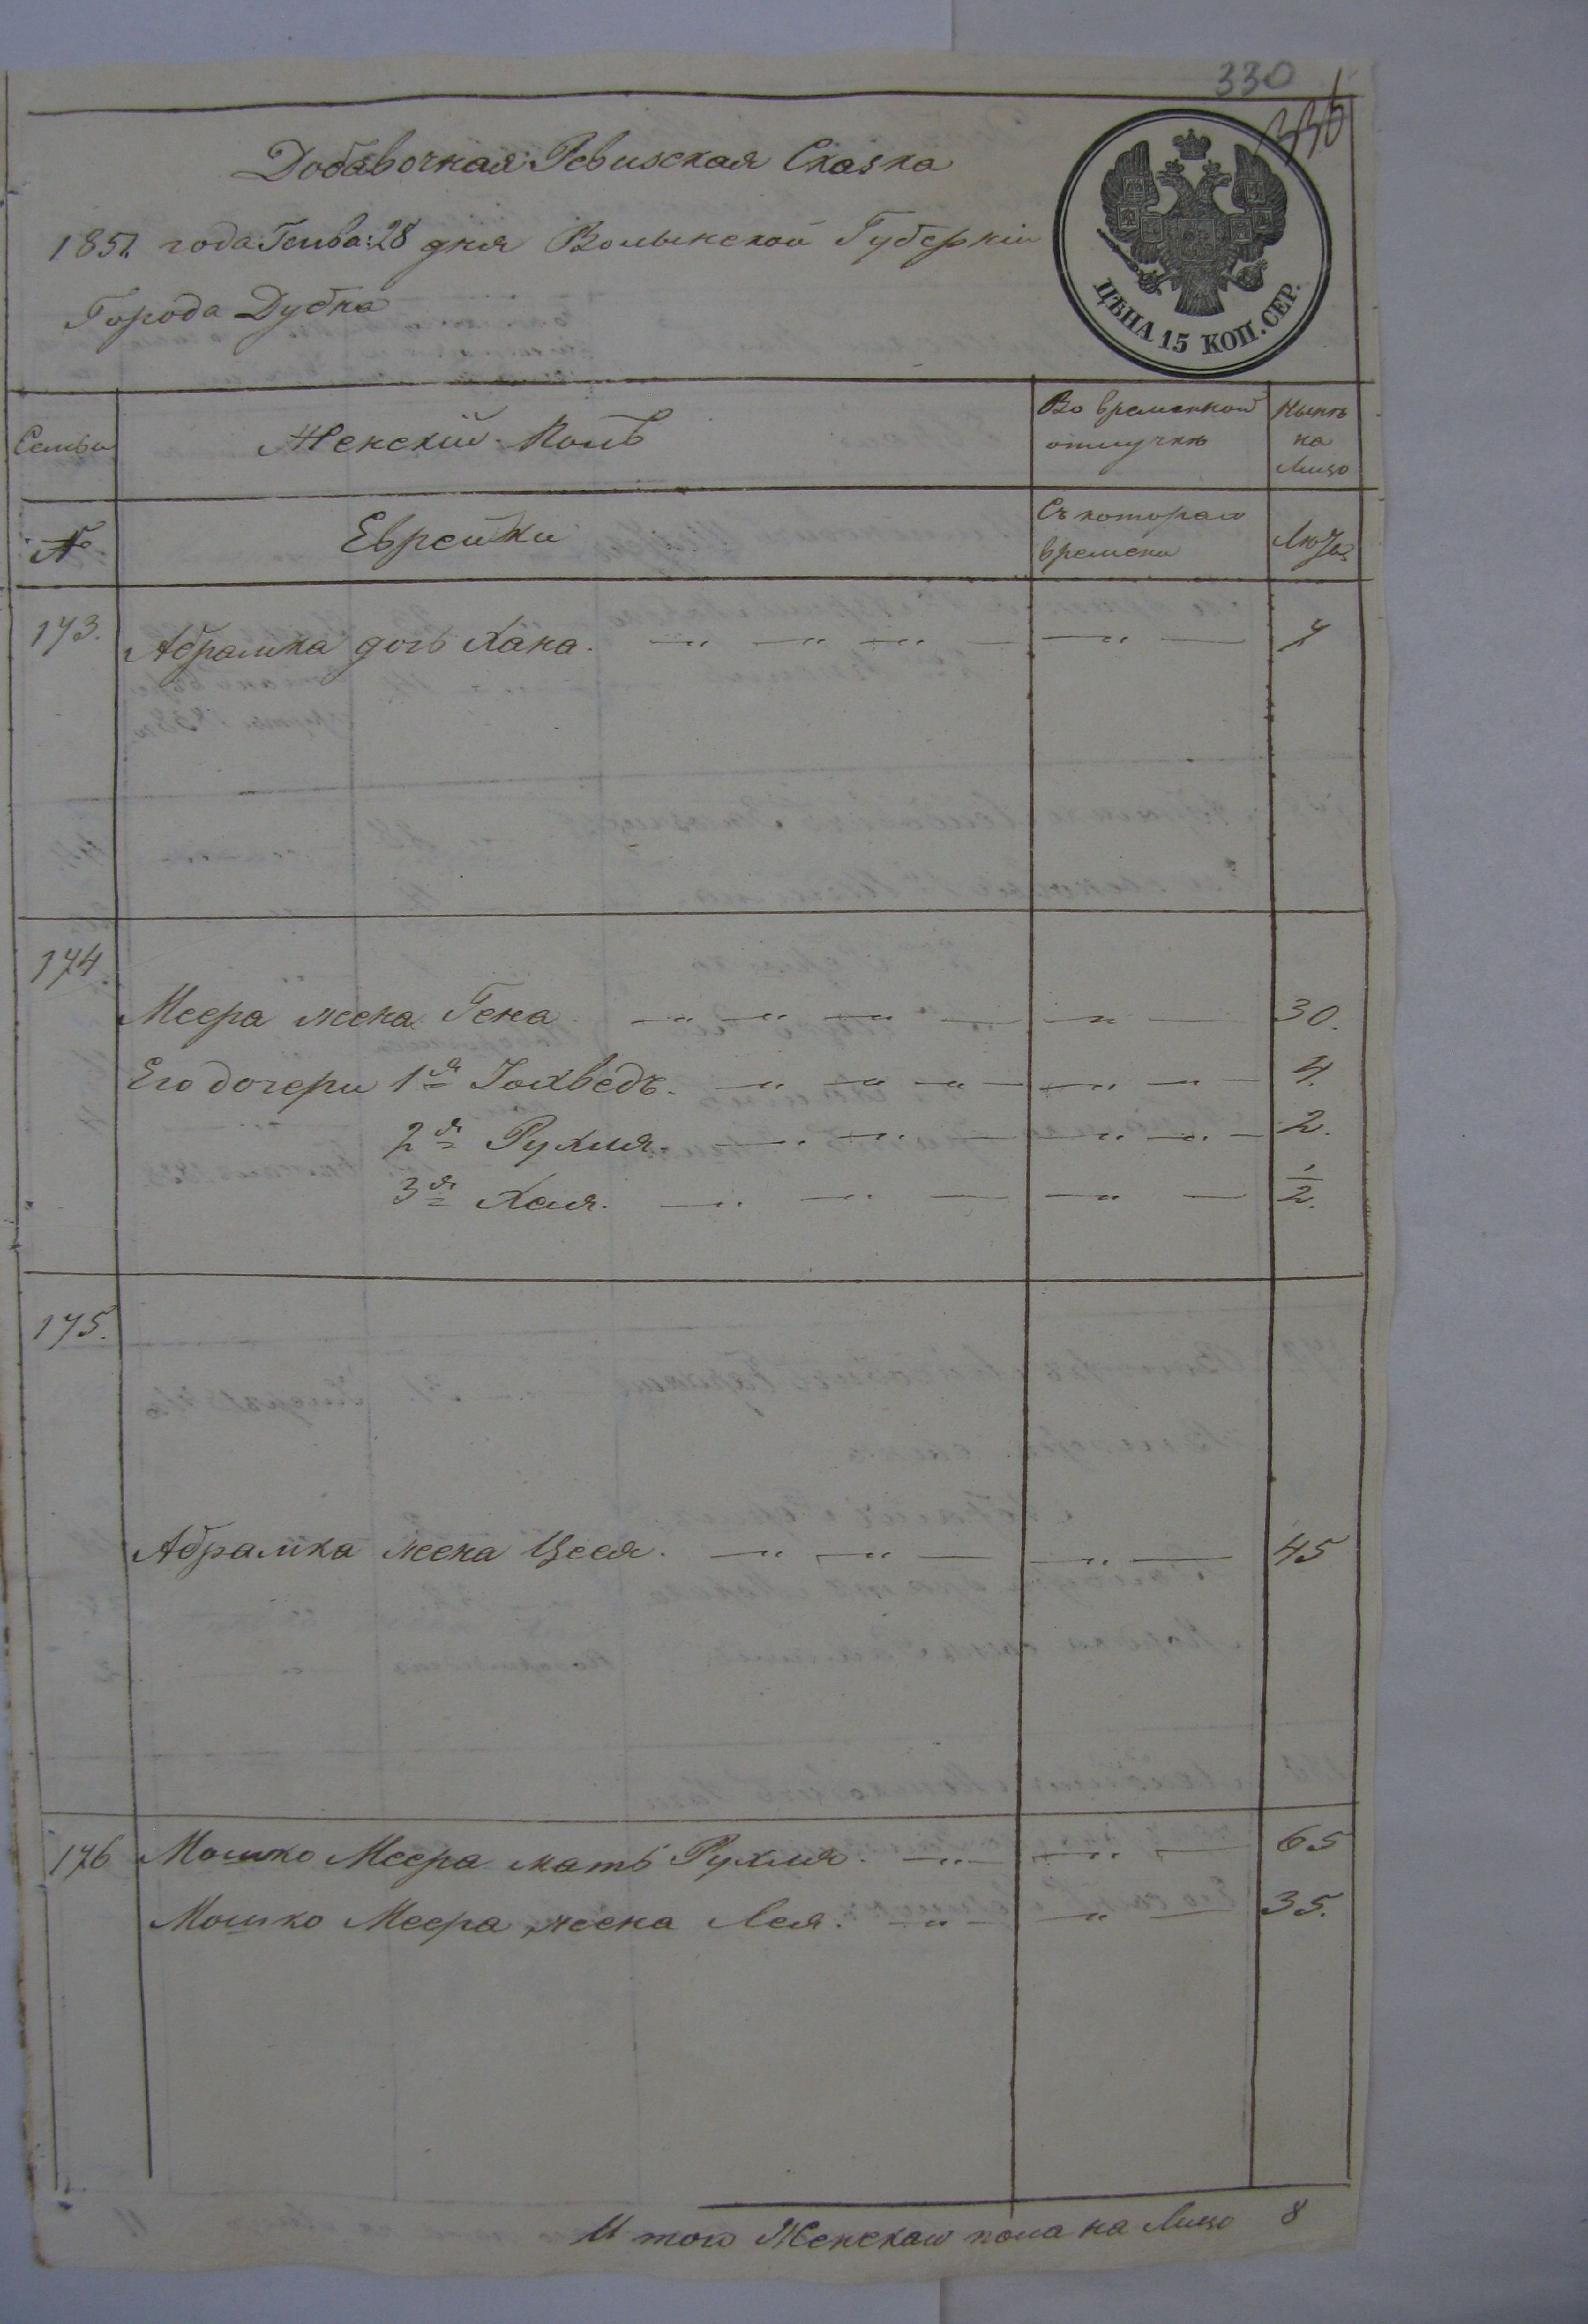 330
336
Добавочная Ревизская Сказка
1851 года Генва: 28 дня Волынской Губернiи
Города Дубна
ЦѢНА 15 КОП. СЕР.
Семьи
Женскiй Полъ
Во временной отлучкѣ
Нынѣ на Лицо
№
Еврейки
Съ котораго времени
Лѣта
173. Абрамка дочь Хана. 7
174. Меера жена Гена 30.
Его дочери 1я Іохведъ. 4.
2я Рухля. 2.
3я Хая. 1/2.
175.
Абрамка жена Цея. 45
176 Мошко Меера мать Рухля. 65
Мошко Меера жена Лея. 35.
И того Женскаго пола на Лицо 8